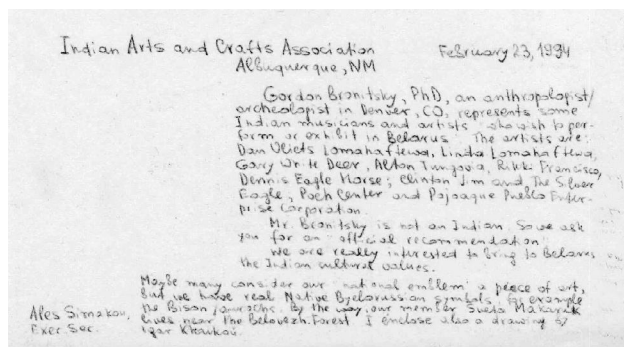 Indian Arts and Crafts Association February 23, 1994
Albuquerque, NM
Gordon Bronitsky, PhD, an anthropologist/
archeologist in Denver, CO, represents some
Indian musicians and artists who wish to per-
form or exhibit in Belarus. The artists are:
Dan Lomahaftewa, Linda Lomahaftewa,
Gary White Deer, Alton Francisco,
Dennis Eagle Horse; Clinton Jim and The Silver
Eagle; Poeh Center and Pojoaque Pueblo Enter-
prise Corporation.
Mr. Bronitsky is not an Indian. So we ask
you for an "official recommendation".
We are really interested to bring to Belarus
the Indian cultural values.
Maybe many consider our "national emblem" a peace of art,
but we have real Native Byelorussian symbols, for example
the Bison . By the way, our member Sveta Makarik
lives near the Belovezh Forest. I enclose also a drawing by
Igar
Ales Simakou,
Exec. Sec.